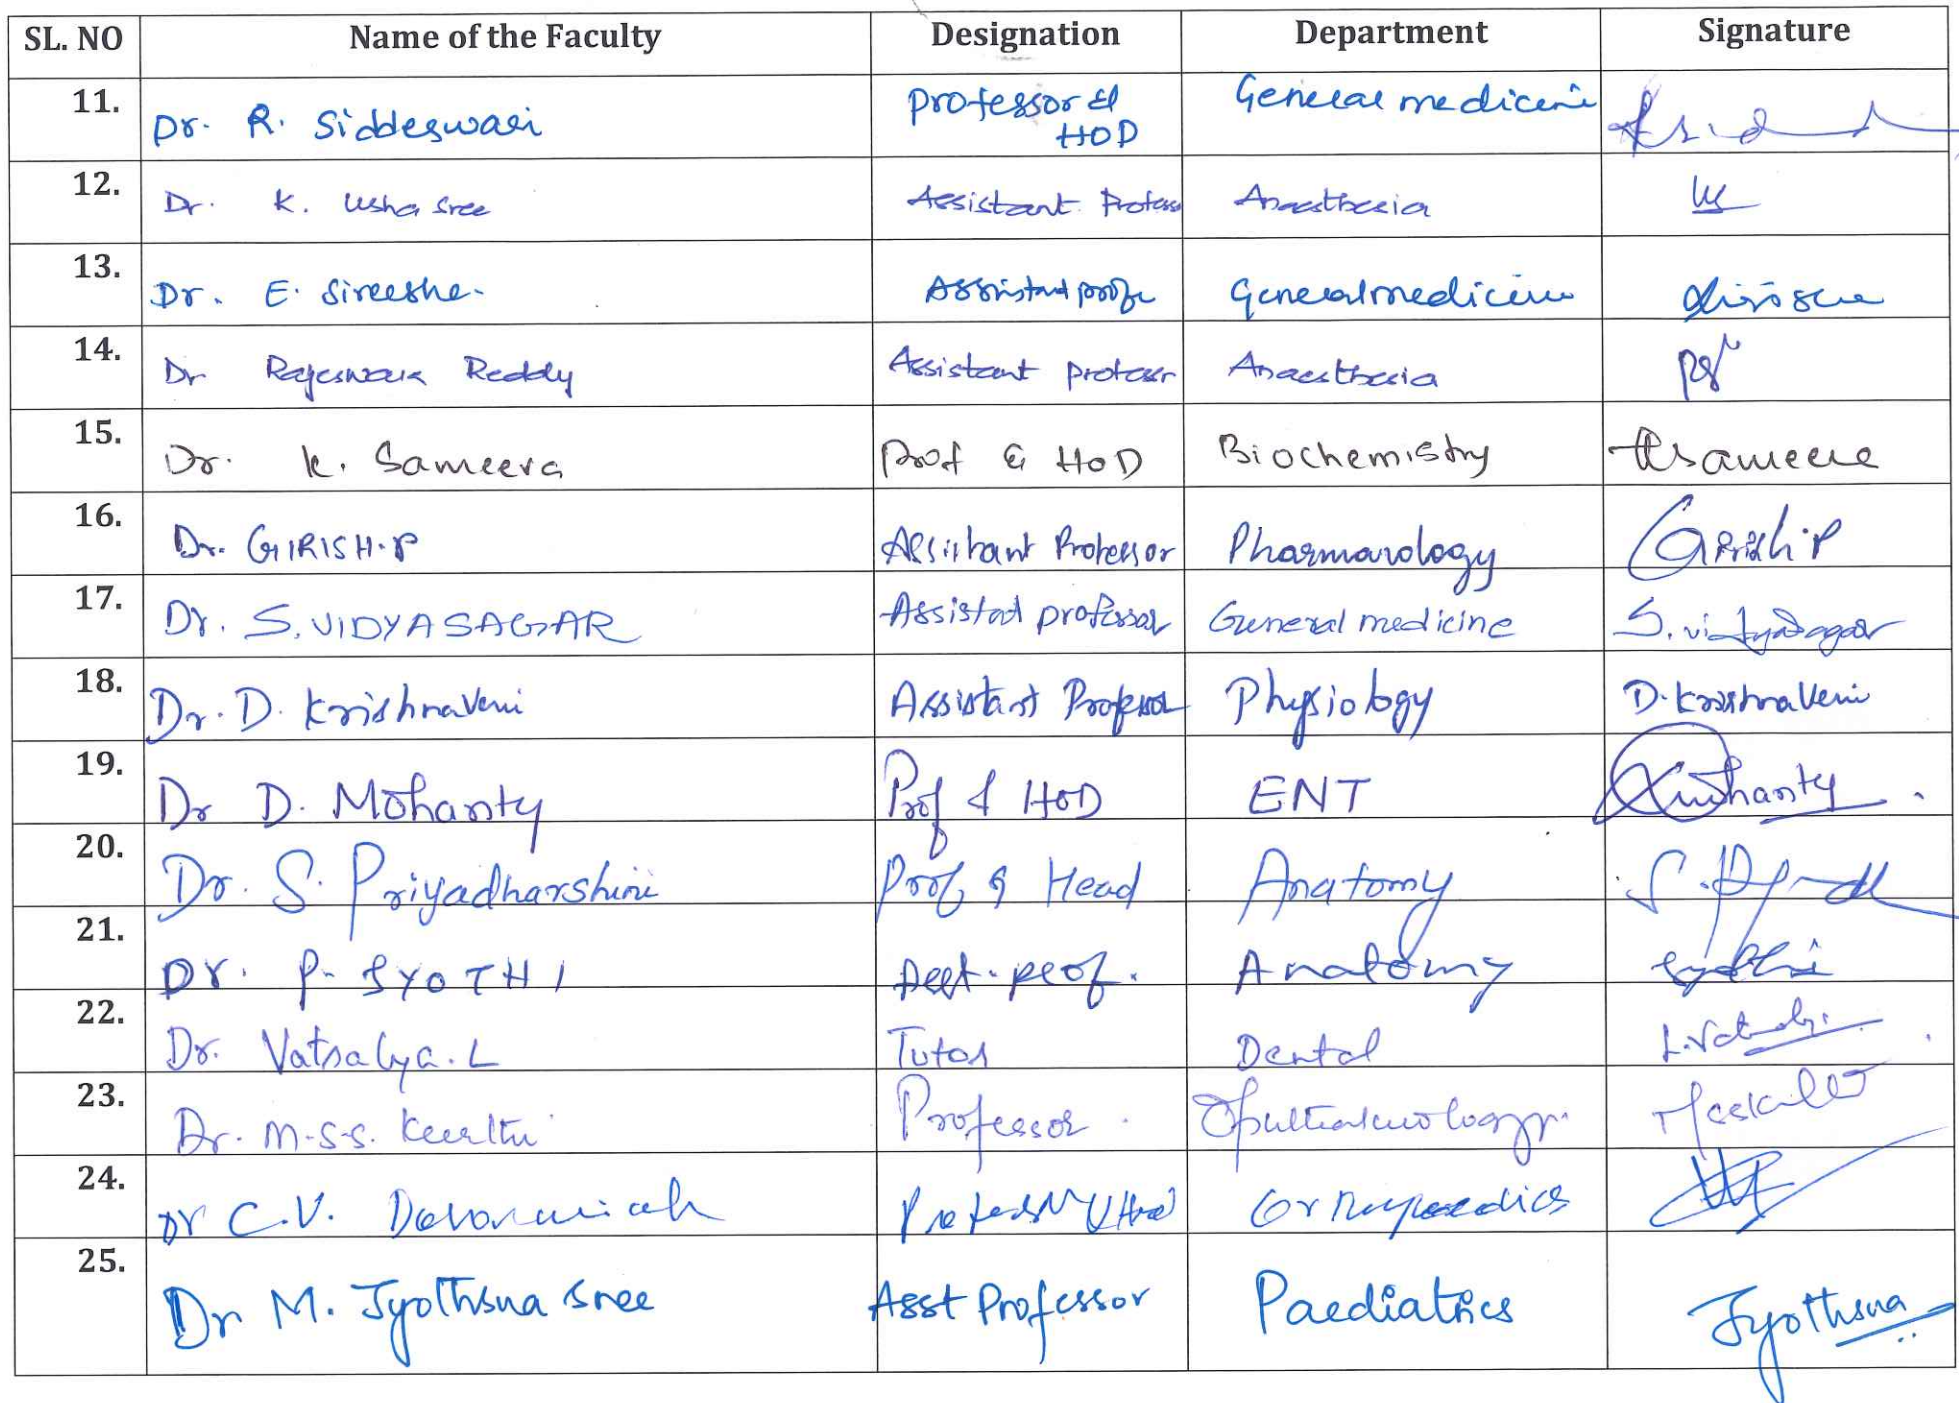 SL. NO Name of the Faculty Designation Department Signature
11. Dr. R. Siddeswari Professor & HOD General medicine
12. Dr. K. Usha Sree Assistant Profess Anaesthesia
13. Dr. E. Sireesha Assistant profe General medicine
14. Dr Rajeswara Reddy Assistant professr Anaesthesia
15. Dr. K. Sameera Prof & HOD Biochemistry Ksameera
16. Dr. GIRISH.P Assistant Professor Pharmacology Girish.P
17. Dr. S. VIDYASAGAR Assistad professor General medicine S. vidyasagar
18. Dr. D. Krishnaveni Assistant Professor Physiology D. Krishnaveni
19. Dr D. Mohanty Prof & HOD ENT
20. Dr. S. Priyadharshini Prof & Head Anatomy
21. DR. P. JYOTHI Asst. prof. Anatomy Jyothi
22. Dr. Vatsalya. L Tutor Dental
23. Dr. M.S.S. Keerthi Professor Ophthalmology
24. Dr C.V. Professor & Hod Orthopaedics
25. Dr M. Jyothsna Sree Asst Professor Paediatrics Jyothsna